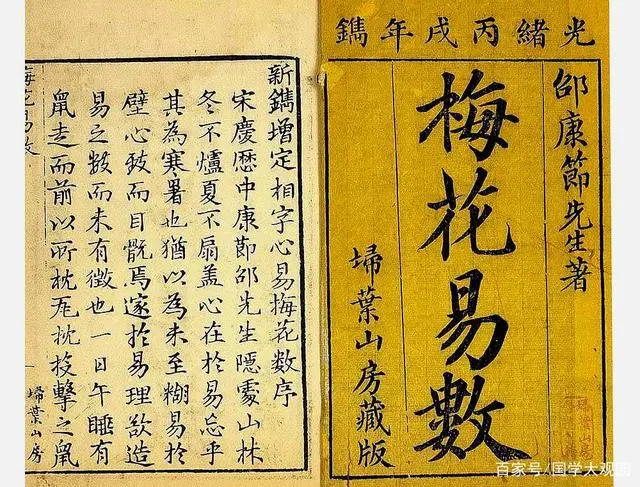 光緒丙戌年鐫
邵康節先生著
梅花易數
埽葉山房藏版
新鐫增定相字心易梅花數序
宋慶歷中康節邵先生隱處山林
冬不爐夏不扇盖心在於易忘乎
其為寒暑也猶以為未至糊易於
壁心致而目翫焉邃於易理欲造
易之數而未有徵也一日午睡有
鼠走而前以所枕瓦枕投擊之鼠
梅花易數
一
埽葉山房
百家号/国学大观园